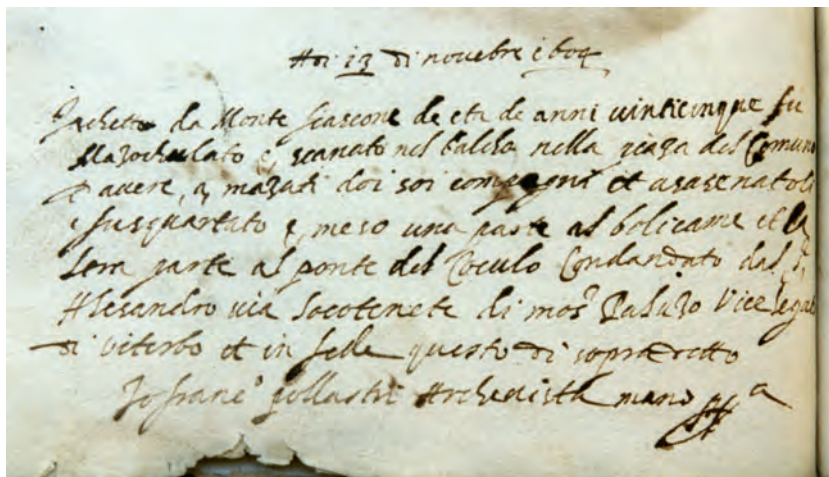 Adi 13 di novebre 1604
Jachetto da Monte fiascone de eta de anni vinticinque fu
Mazocchulato e, scanato nel palcho nella piaza del Comune
P avere, a, mazati doi soi compagni et asasenatoli
e fu squartato e, meso una parte al bolicame et la
tera parte al ponte del condandato dal S.
Alesandro via locotenete di mos.r Vice legato
di viterbo et in fede questo di sopra detto
Io franc.o pollastri mano